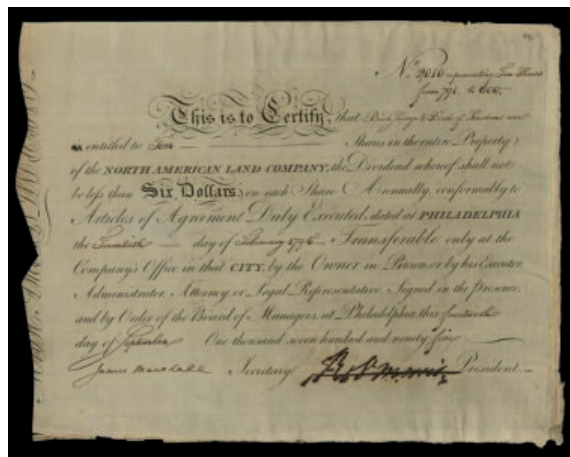 No. 2,010 representing Ten Shares
from 791. to 800.
This is to Certify, that Bird, Savage & Bird of London are
entitled to Ten Shares in the entire Property
of the NORTH AMERICAN LAND COMPANY, the Dividend whereof shall not
be less than Six Dollars, on each Share Annually, conformably to
Articles of Agreement Duly Executed, dated at PHILADELPHIA
the Twentieth day of February 1795 Transferable only at the
Company's Office in that CITY, by the Owner in Person, or by his Executor
Administrator, Attorney or Legal Representative. Signed in the presence
and by Order of the Board of Managers, at Philadelphia this
day of September One thousand seven hundred and ninety five
James Marshall Secretary Rob Morris President.